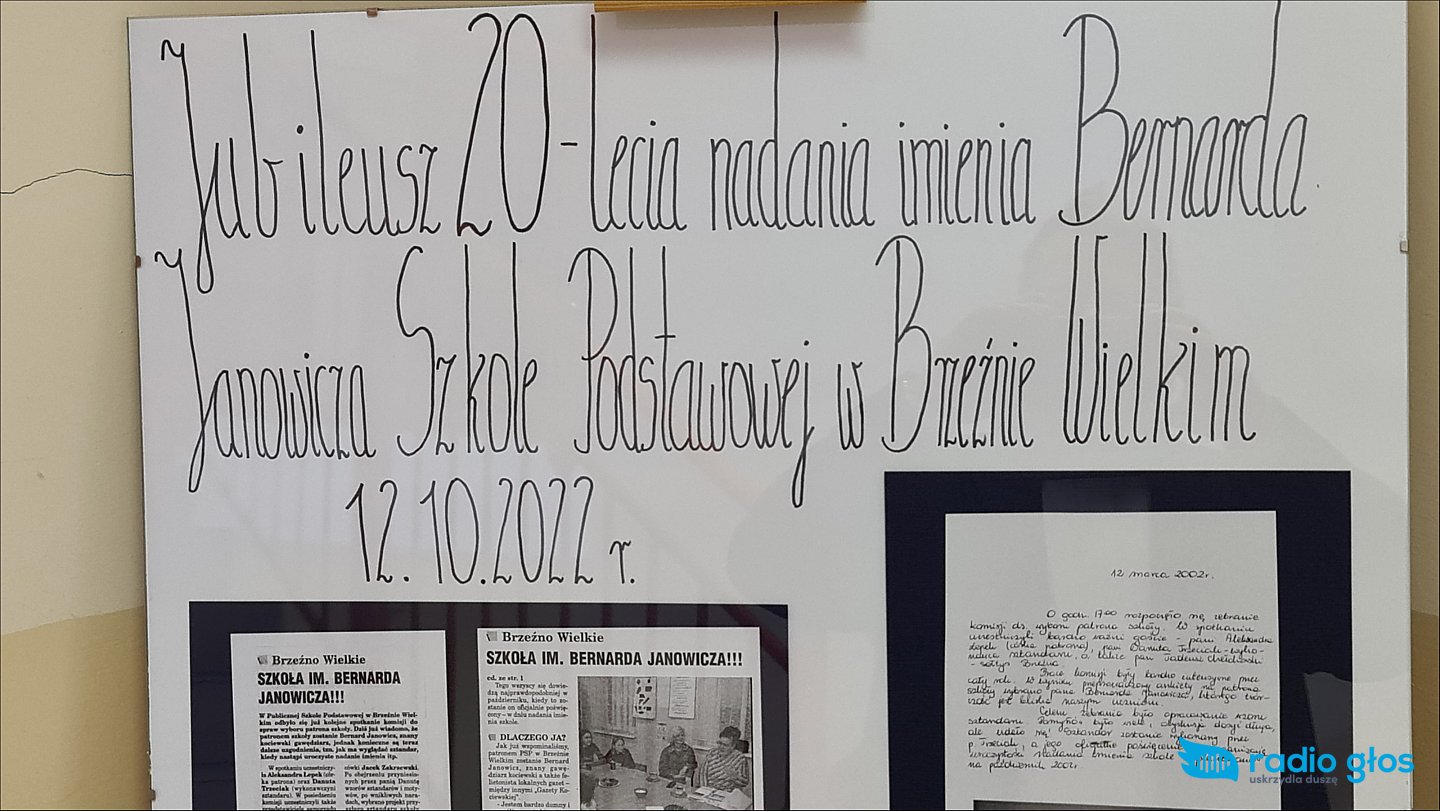 Jubileusz 20-lecia nadania imienia Bernarda
Janowicza Szkole Podstawowej w Brzeźnie Wielkim
12.10.2022 r.
Brzeźno Wielkie
SZKOŁA IM. BERNARDA
JANOWICZA!!!
W Publicznej Szkole Podstawowej w Brzeźnie Wiel-
kim odbyło się już kolejne spotkanie komisji do
spraw wyboru patrona szkoły. Dziś już wiadomo, że
patronem szkoły zostanie Bernard Janowicz, znany
kociewski gawędziarz, jednak konieczne są teraz
dalsze uzgodnienia, tzn. jak ma wyglądać sztandar,
kiedy nastąpi uroczyste nadanie imienia itp.
W spotkaniu uczestniczy-
li Aleksandra Lepek (cór-
ka patrona) oraz Danuta
Trzeciak (wykonawczyni
sztandaru). W posiedzeniu
komisji uczestniczyli także
ców­ki Jacek Zakrzewski.
Po obejrzeniu przyniesio-
nych przez panią Danutę
worów sztandarów i moty-
wów, po wnikliwych nara-
dach, wybrano projekt przy-
Brzeźno Wielkie
SZKOŁA IM. BERNARDA JANOWICZA!!!
cd. ze str. 1
Tego wszyscy się dowie-
dzą najprawdopodobniej w
październiku, kiedy to zo-
stanie on oficjalnie poświę-
cony – w dniu nadania imie-
nia szkole.
DLACZEGO JA?
Jak już wspominaliśmy,
patronem PSP w Brzeźnie
Wielkim zostanie Bernard
Janowicz, znany gawę-
dziarz kociewski a także fe-
lietonista lokalnych gazet –
między innymi „Gazety Ko-
ciewskiej".
- Jestem bardzo dumny i
12 marca 2002r.
O godz. 17.00 rozpoczęło się zebranie
komisji ds. wyboru patrona szkoły. W spotkaniu
uczestniczyli bardzo ważni goście - pani Aleksandra
Lepek (córka patrona), pani Danuta Trzeciak - wyko-
sztandaru, a także pan Tadeusz
- sołtys Brzeźna.
Prace komisji były bardzo intensywne przez
cały rok. W wyniku przeprowadzonej ankiety na patrona
szkoły wybrano pana Bernarda Janowicza, którego
jest bliska naszym uczniom.
Celem zebrania było opracowanie wzoru
sztandaru. Pomysłów było wiele i dyskusja dosyć długa,
ale udało się! Sztandar zostanie wykonany przez
p. Trzeciak, a jego oficjalne poświęcenie
uroczystość nadania imienia szkole
na październik 2002r.
radio głos
uskrzydla duszę